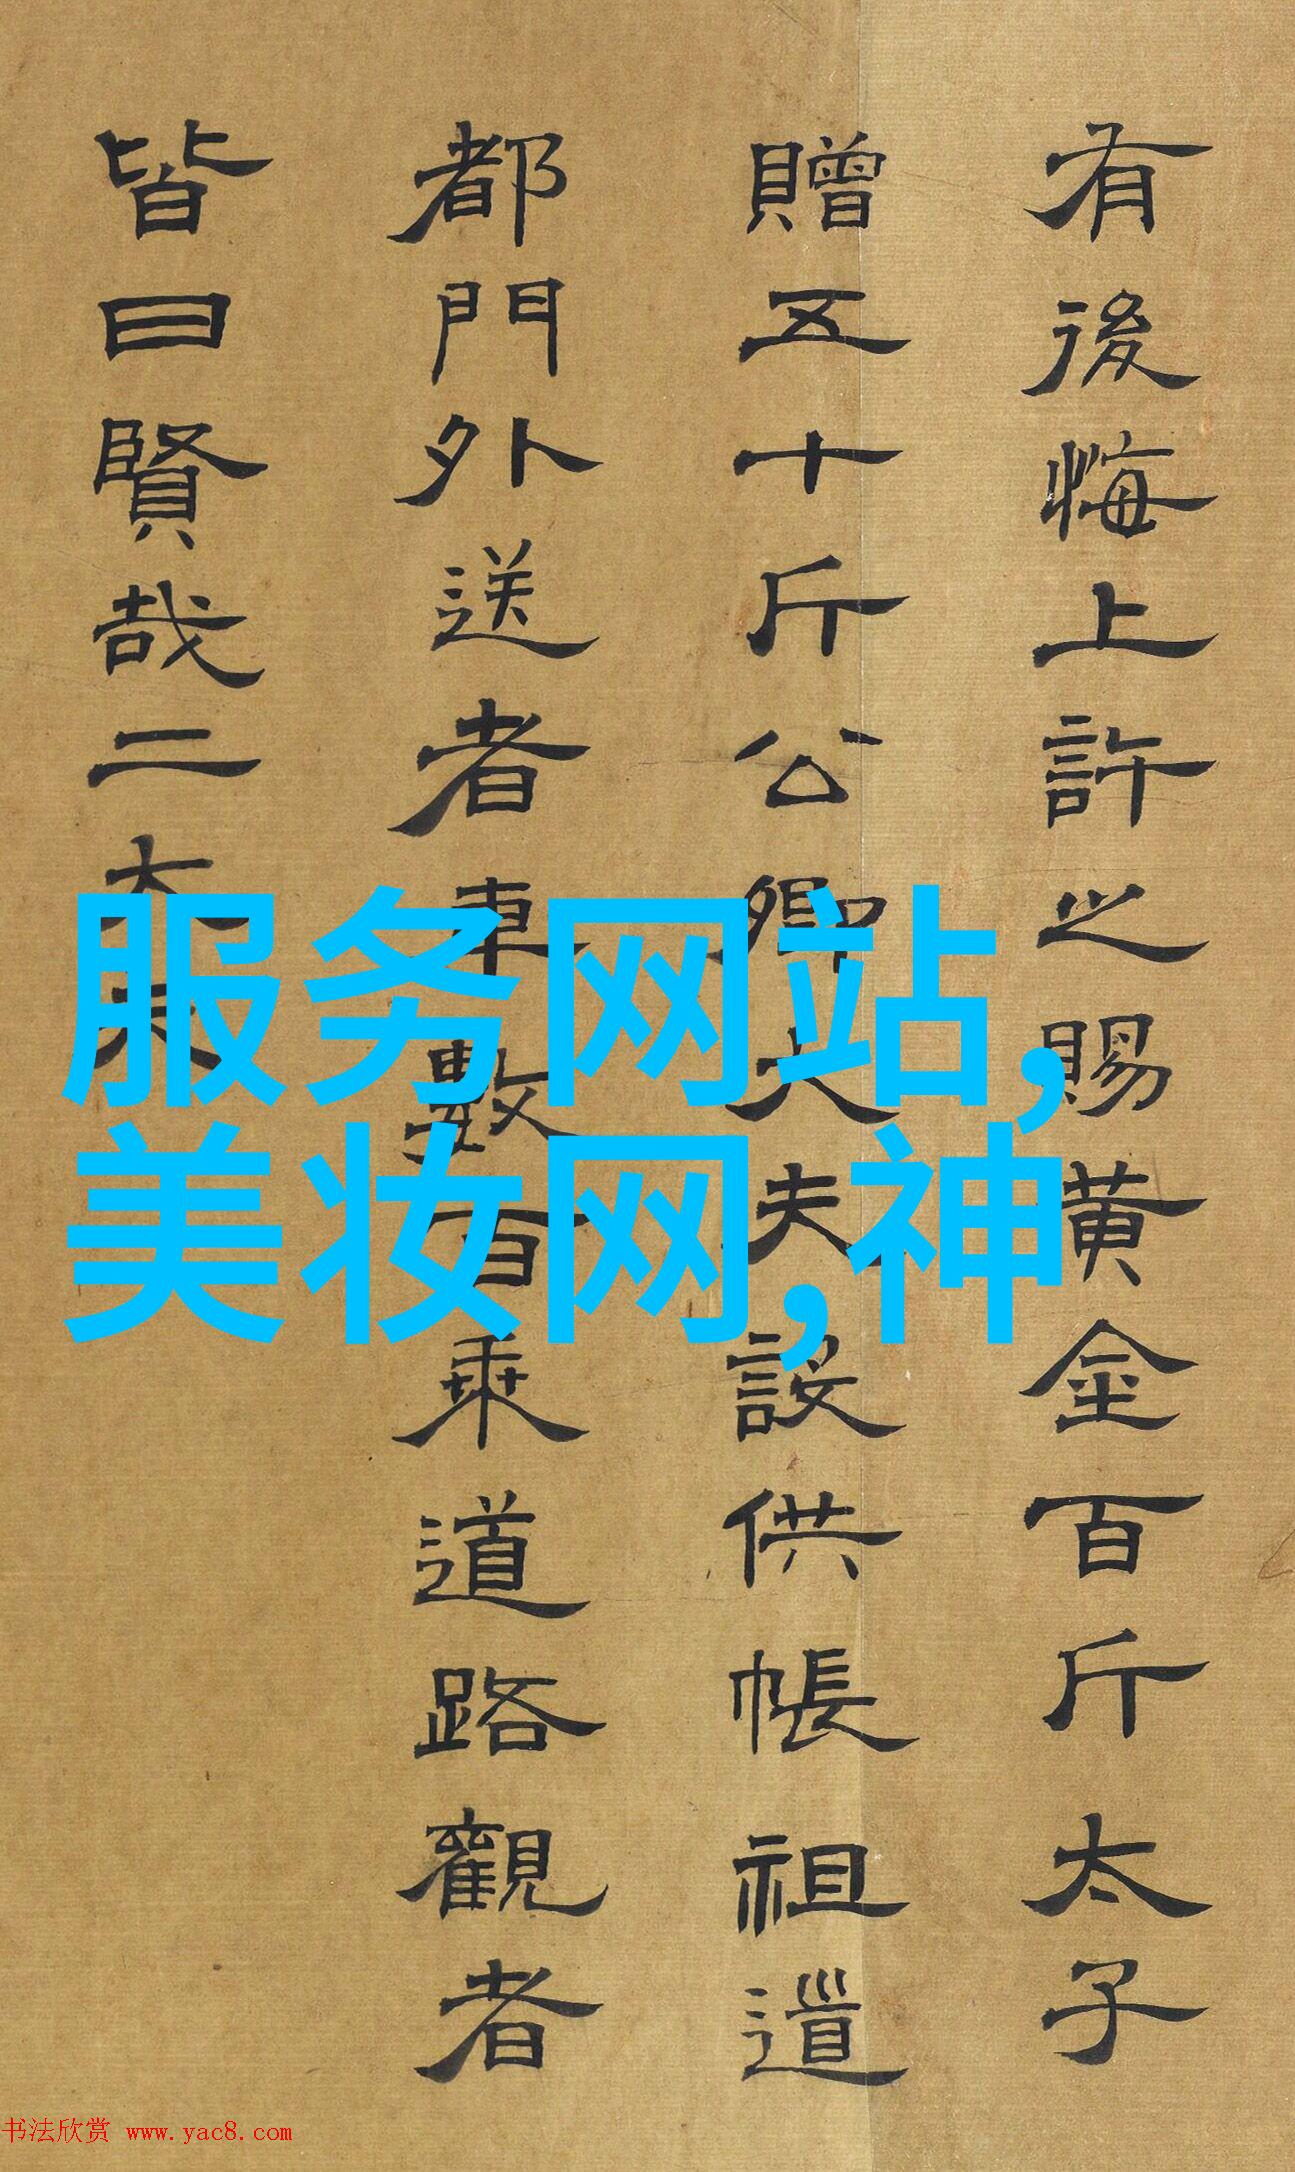 有後悔上許之賜黄金百斤太子
贈五十斤公卿大夫設供帳祖道
都門外送者車數百乘道路觀者
皆曰賢哉二大夫
服务网站,
美妆网,神
书法欣赏 www.yac8.com